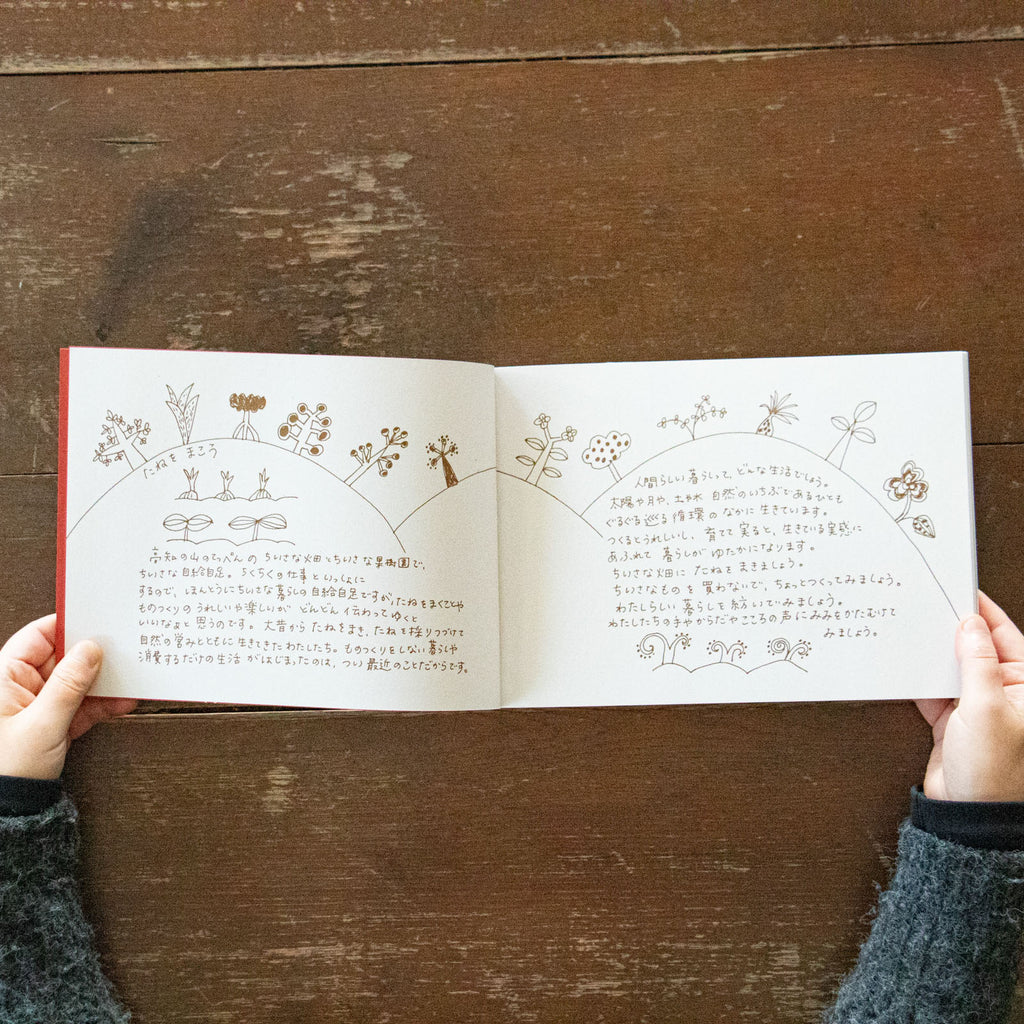 たねをまこう
高知の山のてっぺんの ちいさな畑とちいさな果樹園で、
ちいさな自給自足。ちくちくの仕事といっしょに
するので、ほんとうにちいさな暮らしの自給自足ですが、たねをまくことや
ものつくりの うれしいや楽しいが どんどん伝わってゆくと
いいなぁと思うのです。大昔から たねをまき、たねを採りつづけて
自然の営みとともに生きてきたわたしたち。ものつくりをしない暮らしや
消費するだけの生活がはじまったのは、つい最近のことだからです。
人間らしい暮らしって、どんな生活でしょう。
太陽や月や、土や水 自然のいちぶであるひとも
ぐるぐる巡る循環の なかに生きています。
つくるとうれしいし、育てて実ると、生きている実感に
あふれて 暮らしが ゆたかになります。
ちいさな畑に たねをまきましょう。
ちいさなものを買わないで、ちょっとつくってみましょう。
わたしらしい 暮らしを紡いでみましょう。
わたしたちの手やからだやこころの声にみみをかたむけて
みましょう。